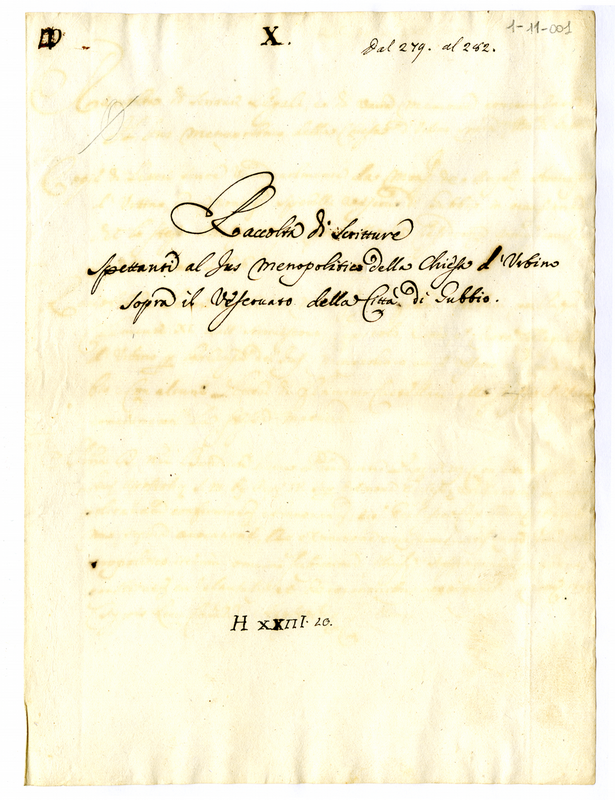 X.
Dal 279. al 282.
1-11-001
Raccolta di Scritture
spettanti al Jus Menopolitico della Chiesa d'Urbino
sopra il Vescovato della Città di Gubbio.
H XXIII. 20.